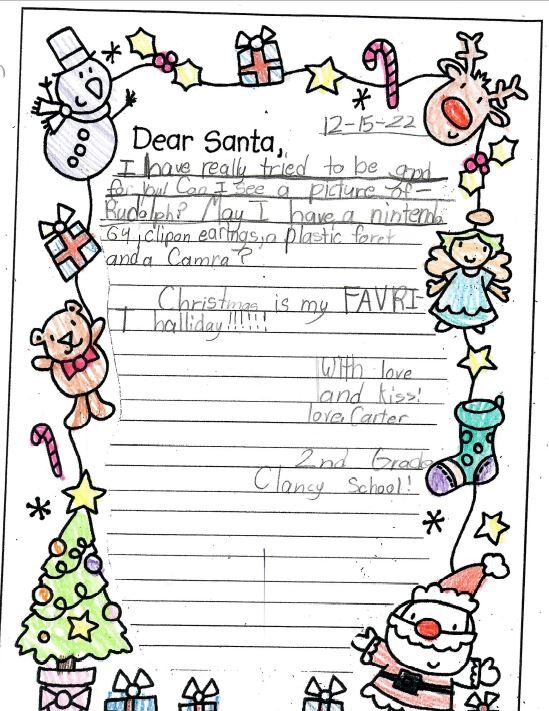 12-15-22
Dear Santa,
I have really tried to be good
for you Can I see a picture of
Rudolph? May I have a nintendo
64, clipon earings, a plastic foret
and a Camra?
Christmas is my FAVRI-
T halliday!!!!!!
With love
and kiss!
love, Carter
2nd Grade
Clancy School!